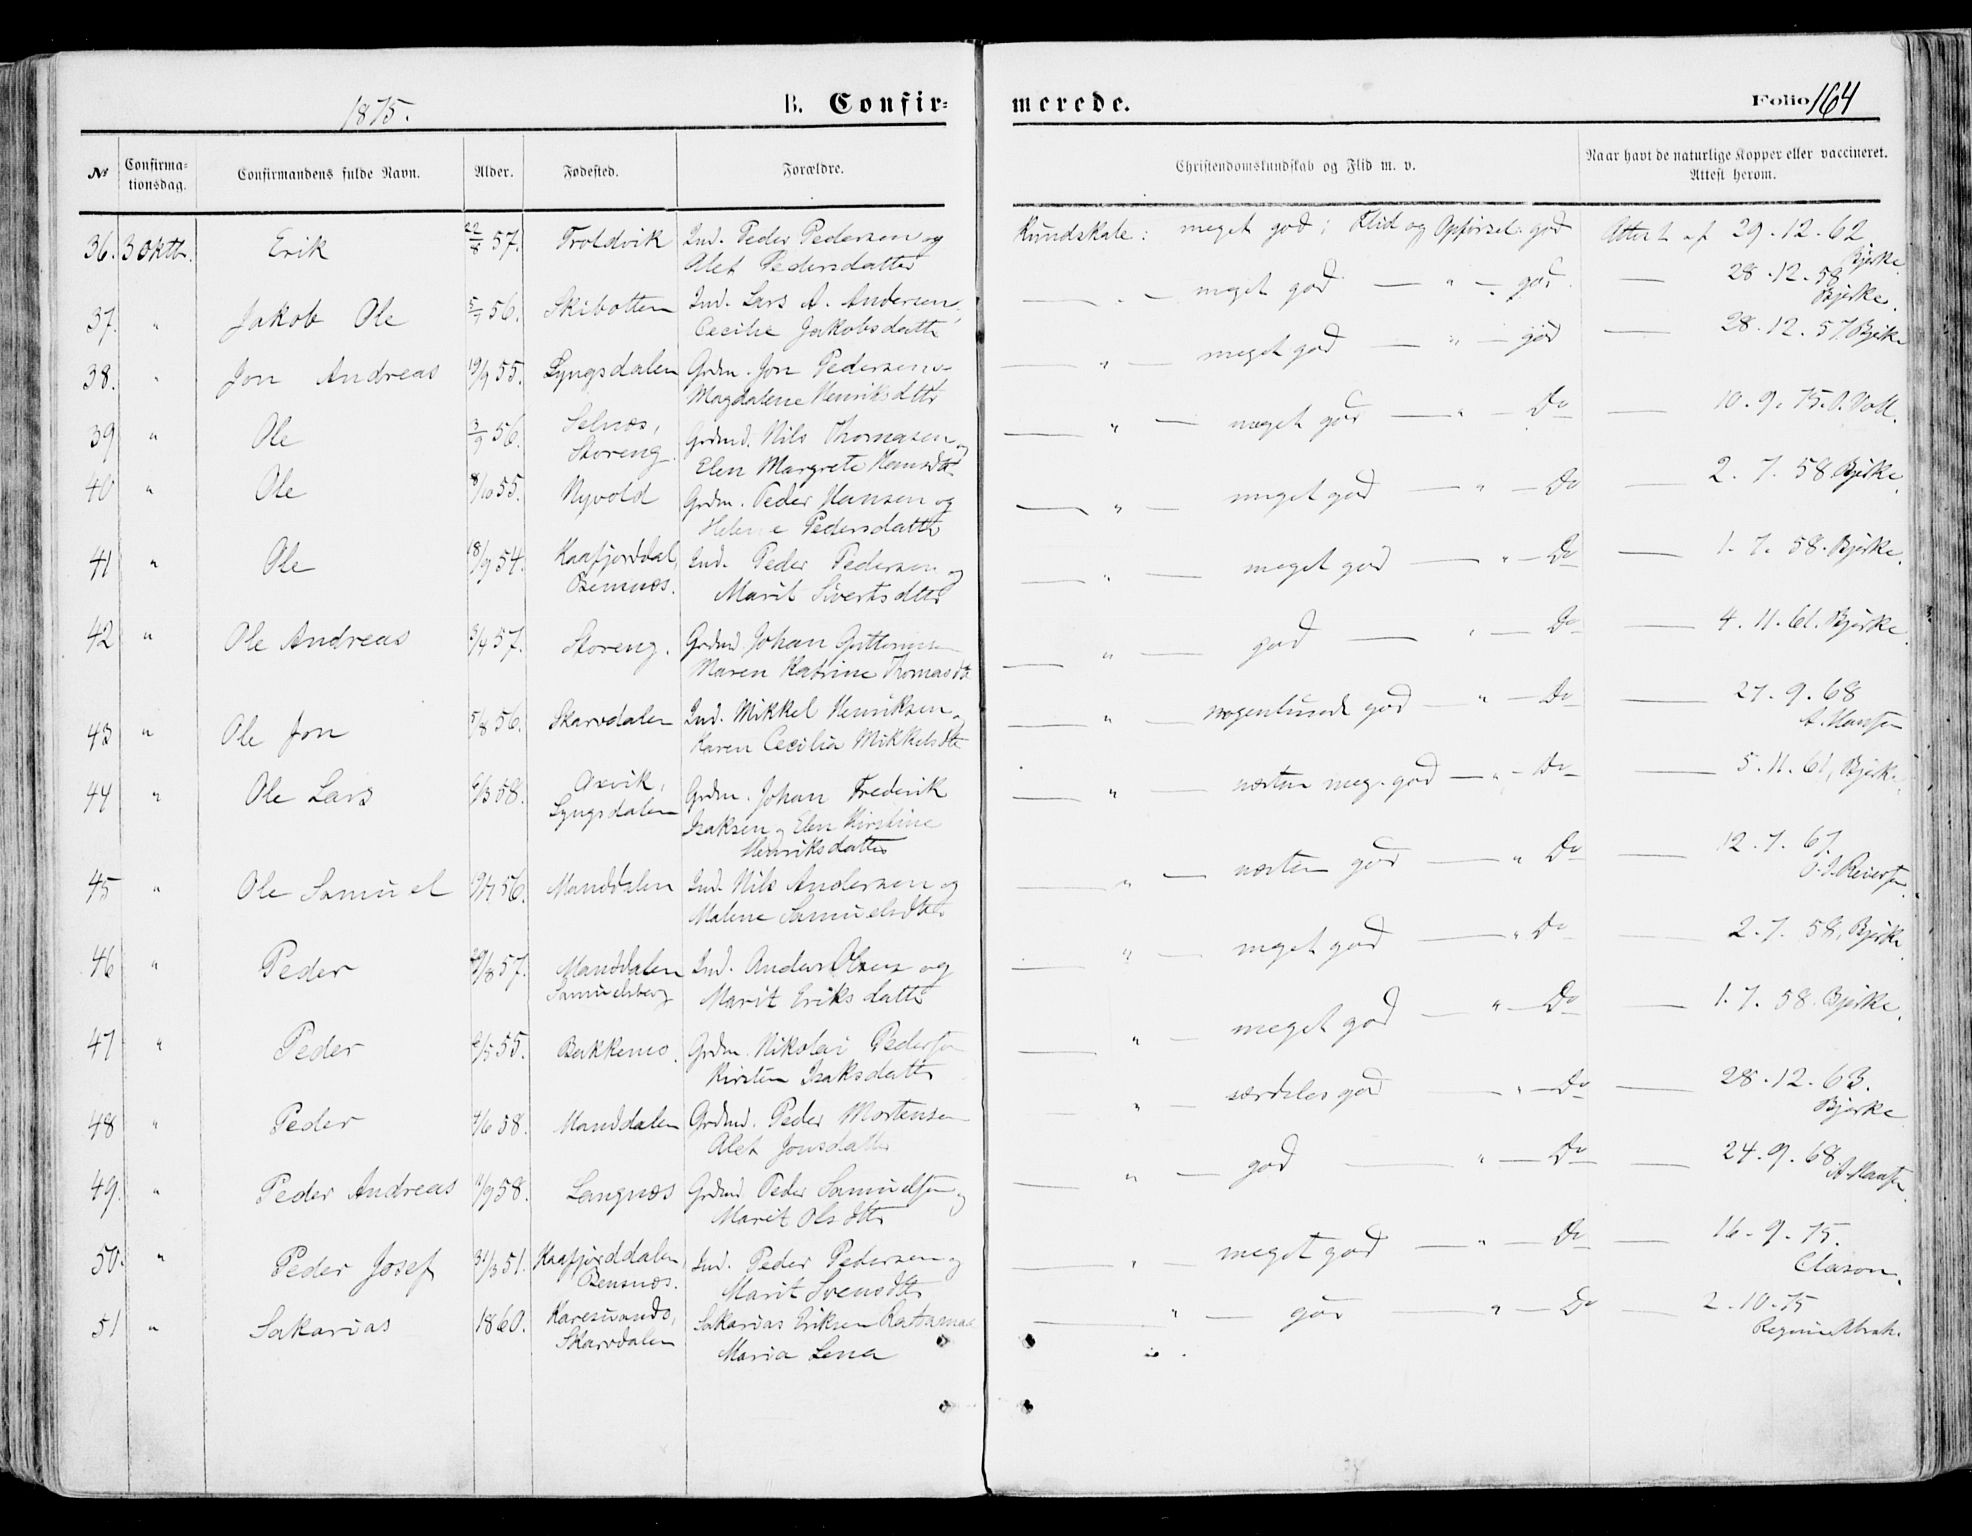 1875. B. Confir-merede. Folio 164
№ Confirmationsdag. Confirmandens fulde Navn. Alder. Fødested. Forældre. Christendomskundskab og Flid m. v. Naar havt de naturlige Kopper eller vaccineret. Attest herom.
36. 3 Oktb. Erik 22/8 57. Troldvik Ind. Peder Pedersen og Kundskab: meget god; Flid og Opførsel god Attest af 29.12.62
Alet Pedersdatter Bjerke
37. " Jakob Ole 56. Skibotten Ind. Lars A. Andersen, — " — meget god — " — god. — 28.12.58
Cecilie Jakobsdatter Bjerke.
38. " Jon Andreas 19/9 55. Lyngsdalen Grdm. Jon Pedersen — " — meget god — " — god — 28.12.57. Bjerke
Magdalene Henriksdtr
39 " Ole 3/9 56. Selnæs, Grdmd. Nils Thomasen og — " — meget god — " — Do — 10.9.75. O. Voll.
Storeng. Elen Margrete Hansdtr
40 " Ole 8/10 55. Nyvold Grdm. Peder Hansen og — " — meget god — " — Do — 2.7.58 Bjerke.
Helene Pedersdatter
41 " Ole 18/9 54. Kaafjorddal, Ind. Peder Pedersen og — " — meget god — " — Do — 1.7.58. Bjerke.
Bensnæs. Marit Sivertsdtter
42 " Ole Andreas 57. Storeng. Grdmd Johan Guttormsen — " — god — " — Do — 4.11.61. Bjerke.
Maren Katrine Thomasdtr
43 " Ole Jon 5/8 56. Skarvdalen Ind. Mikkel Henriksen og — " — nogenlunde god — " — Do — 27.9.68
Karen Cecilia Mikkelsdtr A. Hansen
44 " Ole Lars 58. Oxvik, Grdm. Johan Frederik — " — næsten meg. god — " — Do — 5.11.61, Bjerke.
Lyngsdalen Isaksen og Elen Kirstine
Henriksdatter
45 " Ole Samuel 56. Manddalen Ind. Nils Andersen og — " — næsten god — " Do — 12.7.67.
Malene Samuelsdtr
46 " Peder 57. Manddalen Ind. Anders Olsen og — " — meget god — " Do — 2.7.58, Bjerke.
Samuelsberg Marit Eriksdatter
47 " Peder 55. Bakkemo. Grdm. Nikolai Pedersen — " — meget god — " — Do — 1.7.58. Bjerke.
Kirsten Isaksdatter
48 " Peder 58. Manddalen Grdmd. Peder Mortensen — " — særdeles god — " — Do — 28.12.63.
Alet Jonsdatter Bjerke
49. " Peder Andreas 58. Langnæs Grdmd Peder Samuelsen og — " — god — " — Do — 24.9.68
Marit Olsdtr A. Hansen.
50. " Peder Josef 31/3 51. Kaafjorddalen, Ind. Peder Pedersen og — " — meget god — " — Do — 16.9.75.
Bensnæs. Marit Svensdtr Clason.
51 " Sakarias 1860. Karesuando, Sakarias Eriksen — " — god — " — Do — 2.10.75
Skarvdalen Maria Lena